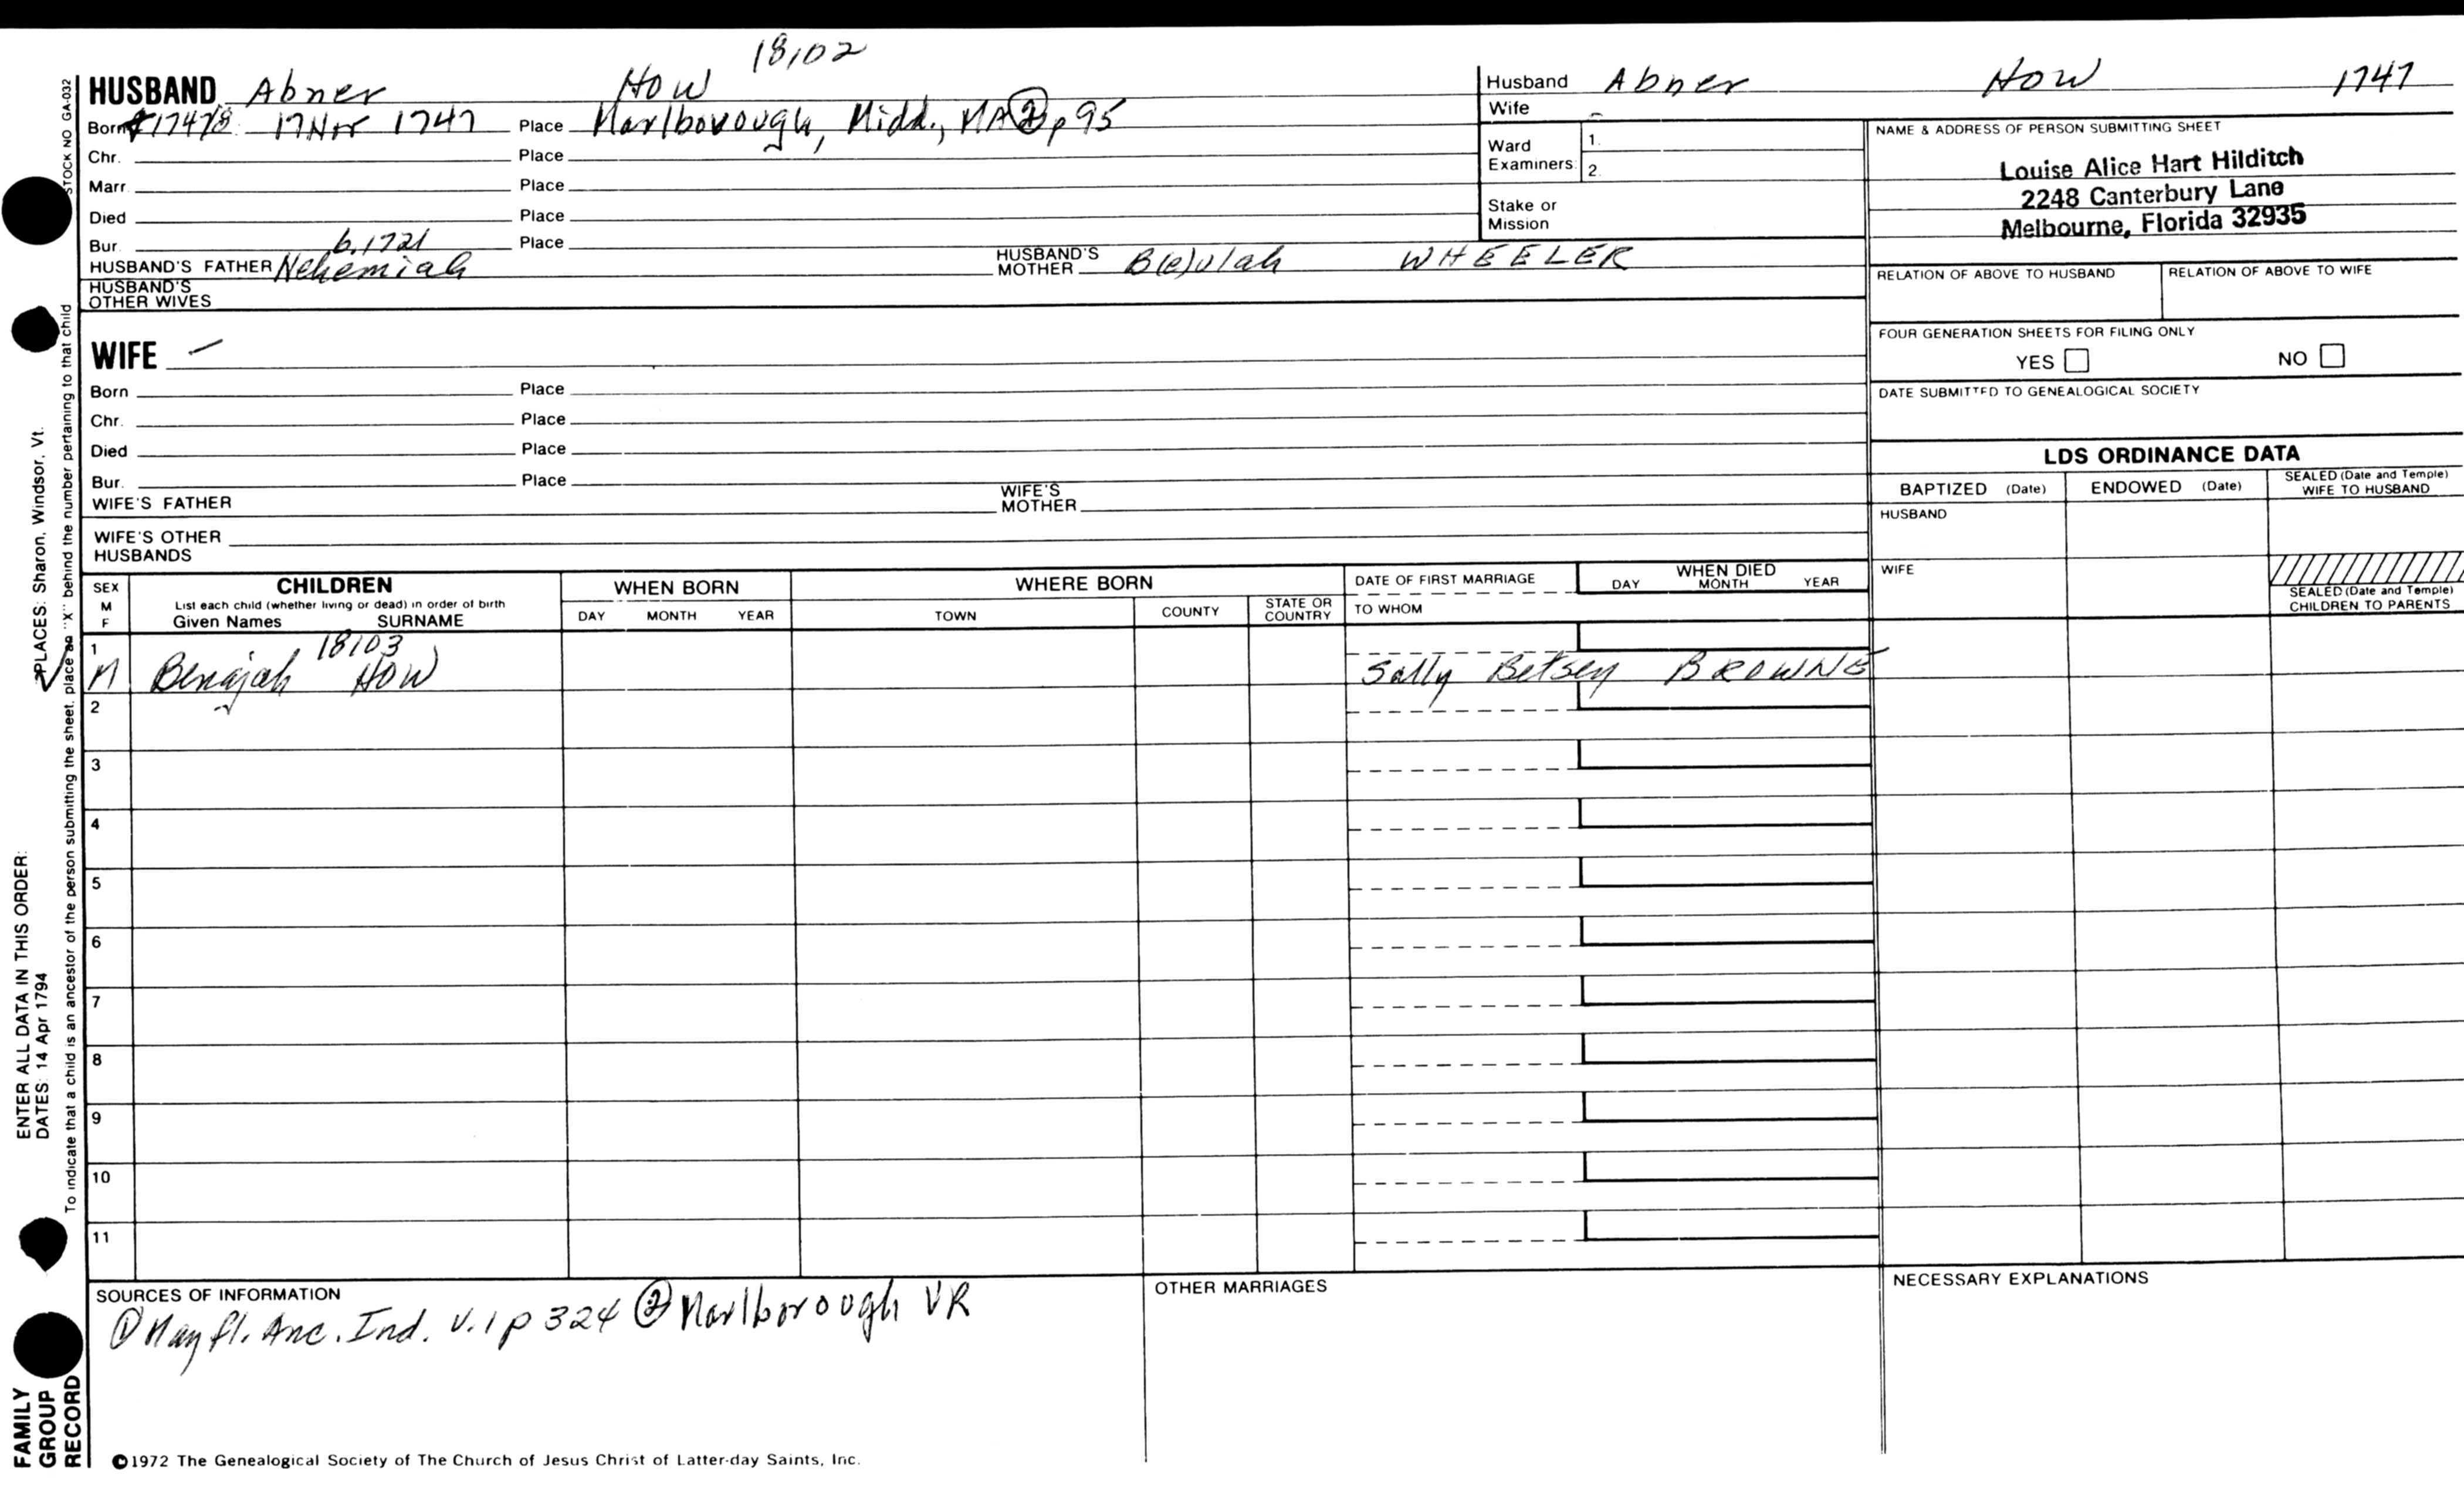 18102
HUSBAND Abner How
Born 1747/8 17 Nov 1747 Place Marlborough, Midd., MA ② p 95
Chr. Place
Marr. Place
Died Place
Bur. Place
b. 1721
HUSBAND'S FATHER Nehemiah HUSBAND'S MOTHER B(e)ulah WHEELER
HUSBAND'S OTHER WIVES
WIFE –
Born Place
Chr. Place
Died Place
Bur. Place
WIFE'S FATHER WIFE'S MOTHER
WIFE'S OTHER HUSBANDS
Husband Abner How 1747
Wife –
Ward Examiners: 1.
2.
Stake or Mission
NAME & ADDRESS OF PERSON SUBMITTING SHEET
Louise Alice Hart Hilditch
2248 Canterbury Lane
Melbourne, Florida 32935
RELATION OF ABOVE TO HUSBAND RELATION OF ABOVE TO WIFE
FOUR GENERATION SHEETS FOR FILING ONLY
YES NO
DATE SUBMITTED TO GENEALOGICAL SOCIETY
LDS ORDINANCE DATA
BAPTIZED (Date) ENDOWED (Date) SEALED (Date and Temple) WIFE TO HUSBAND
HUSBAND
WIFE
SEALED (Date and Temple) CHILDREN TO PARENTS
SEX M F
CHILDREN
List each child (whether living or dead) in order of birth
Given Names SURNAME
WHEN BORN
DAY MONTH YEAR
WHERE BORN
TOWN COUNTY STATE OR COUNTRY
DATE OF FIRST MARRIAGE
TO WHOM
WHEN DIED
DAY MONTH YEAR
18103
1 M Benajah How Sally Betsey BROWNE
2
3
4
5
6
7
8
9
10
11
SOURCES OF INFORMATION
① Mayfl. Anc. Ind. V. 1 p 324 ② Marlborough VR
OTHER MARRIAGES
NECESSARY EXPLANATIONS
©1972 The Genealogical Society of The Church of Jesus Christ of Latter-day Saints, Inc.
STOCK NO GA-032
To indicate that a child is an ancestor of the person submitting the sheet, place an "X" behind the number pertaining to that child
ENTER ALL DATA IN THIS ORDER:
DATES: 14 Apr 1794
PLACES: Sharon, Windsor, Vt.
FAMILY
GROUP
RECORD